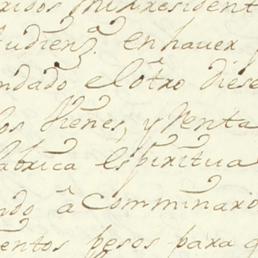 Audienª en haver
ndado el otro diese
los Vienes, y Renta
fabrica espiritua
ndo â Comminario
entos pesos para q